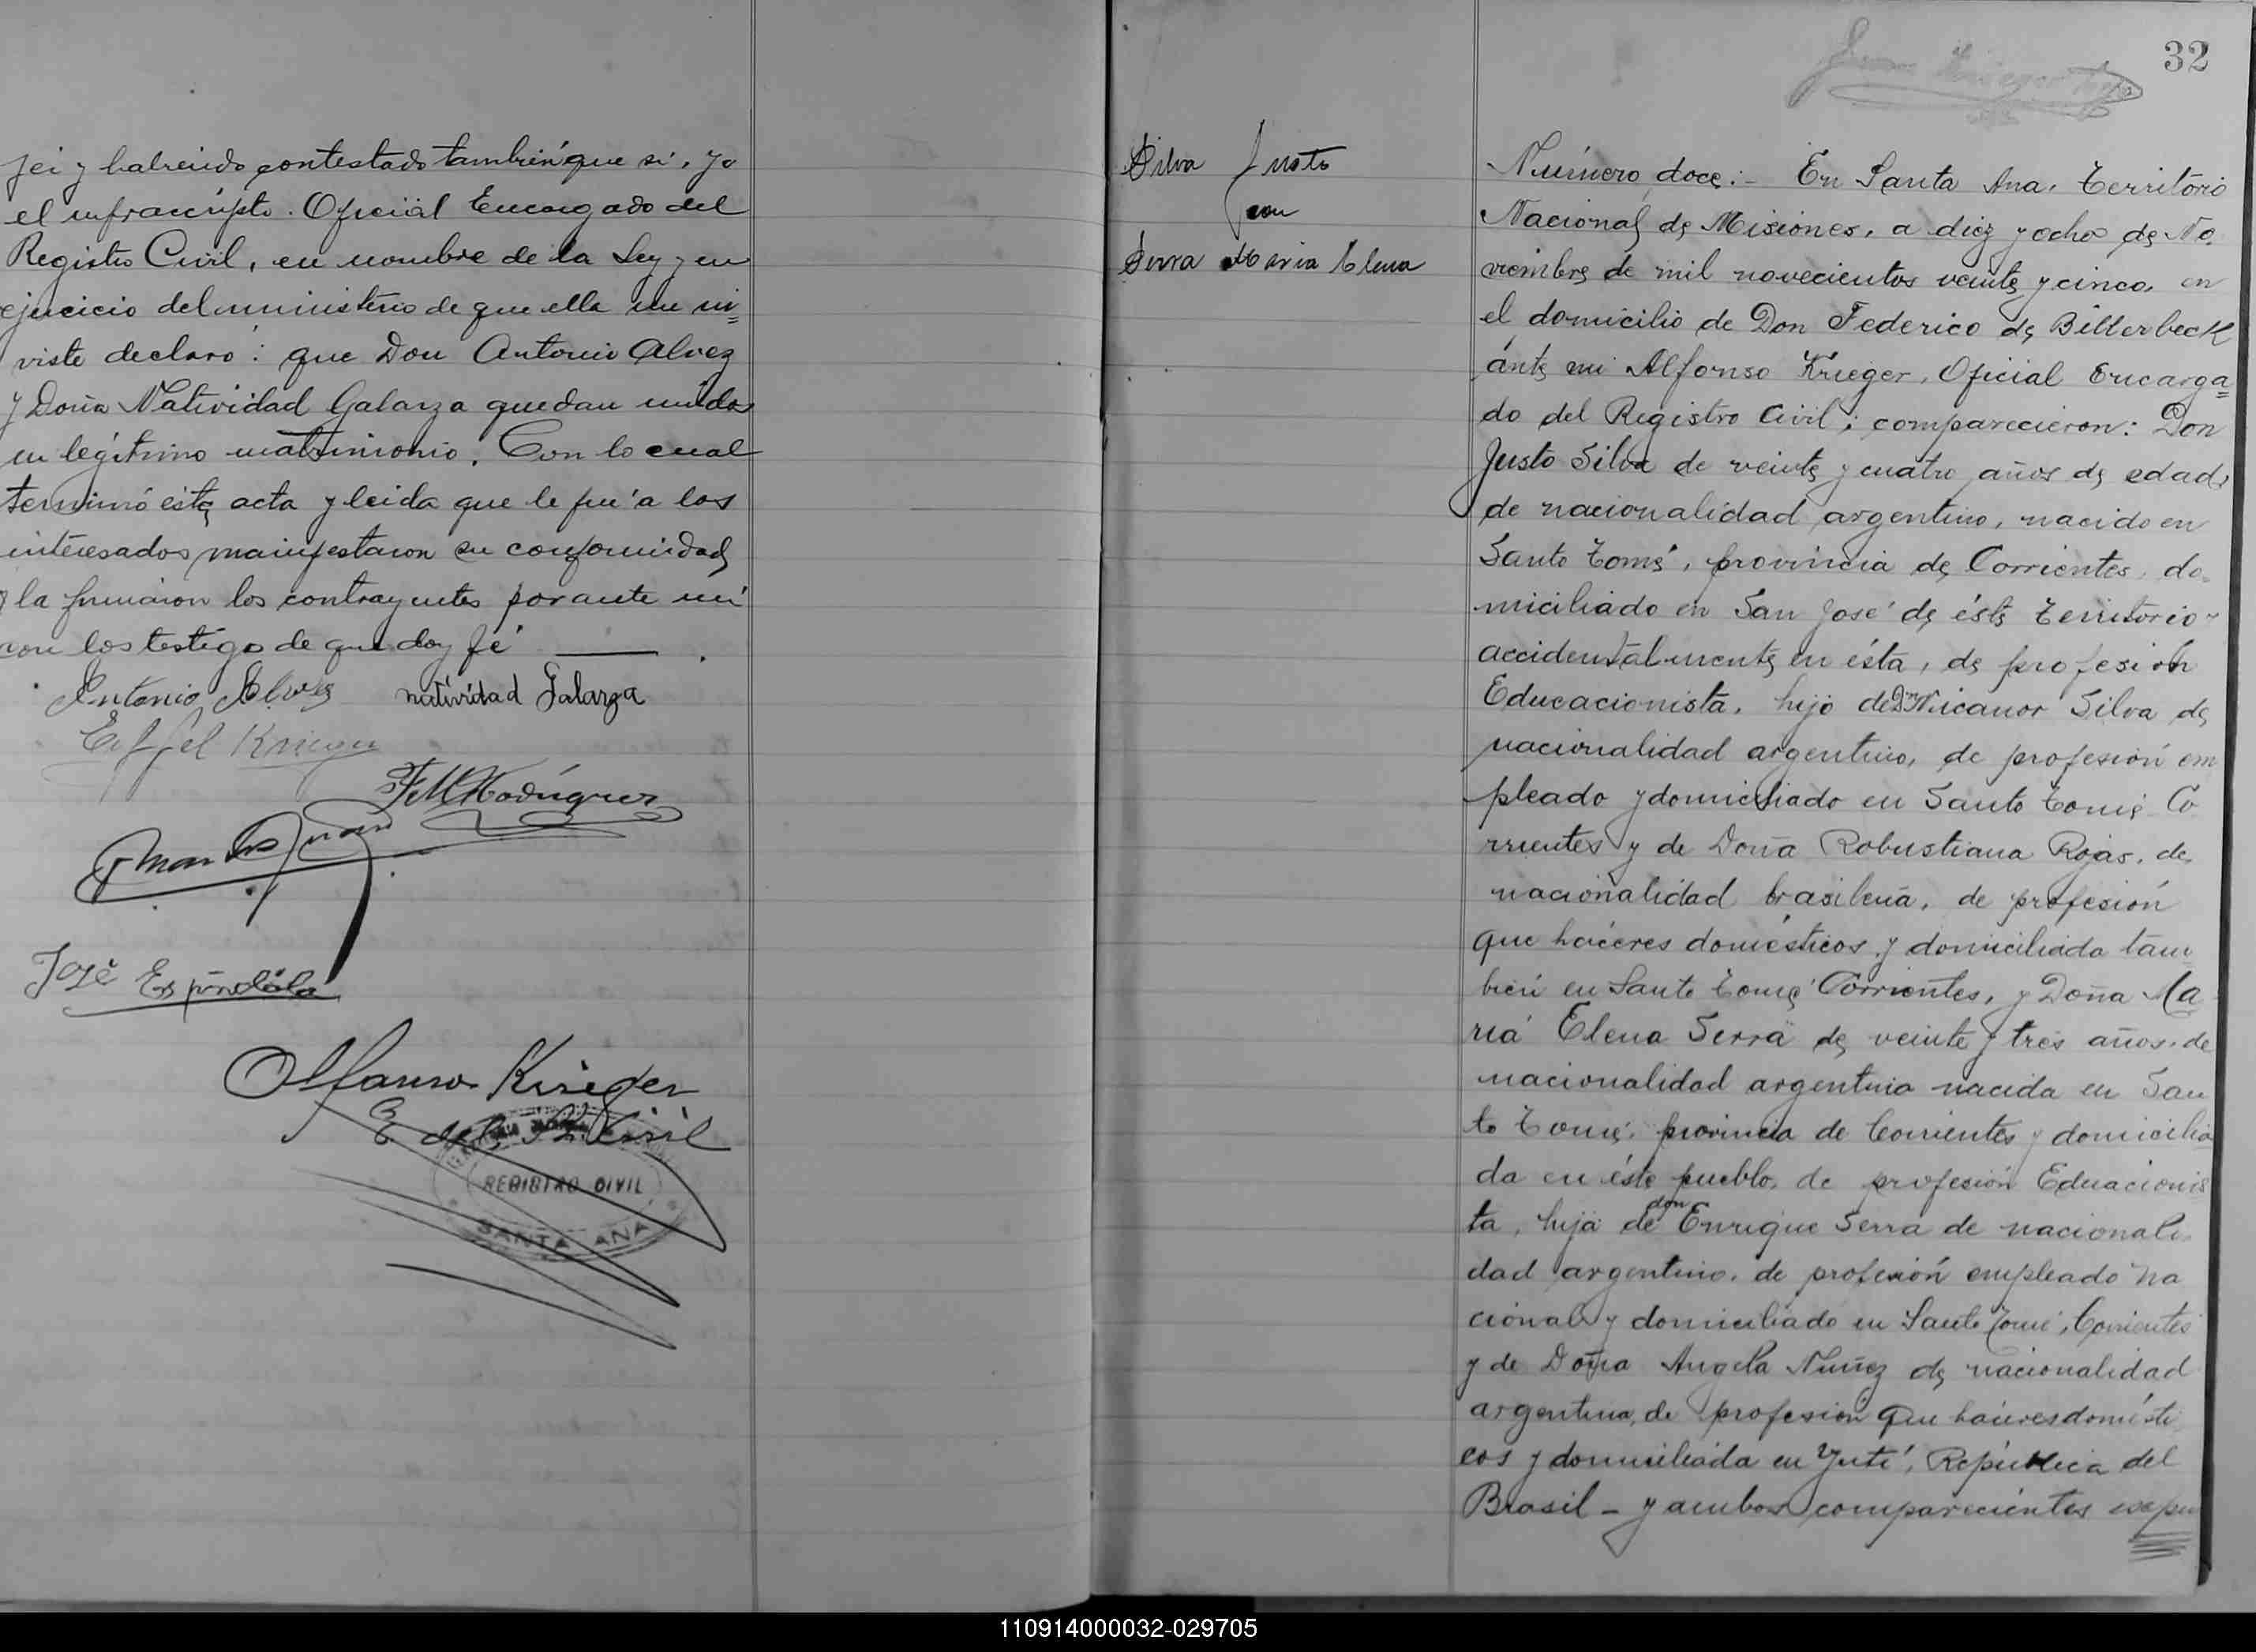 jer y habiendo contestado también que si, yo
el infraescripto. Oficial Encargado del
Registro Civil, en nombre de la Ley y en
ejercicio del ministerio de que ella me in=
viste declaro: que Don Antonio Alvez
y Doña Natividad Galarza quedan unidos
en legítimo matrimonio. Con lo cual
terminó este acta y leida que le fué a los
interesados manifestaron su conformidad
y la firmaron los contrayentes por ante mi
con los testigo de que doy fé
Antonio Alves natividad Galarza
Eiffel Krieger
F M Rodriguez
José Espindola
Alfonso Krieger
E del R. Civil
REGISTRO CIVIL
SANTA ANA
32
Silva Justo
con
Serra Maria Elena
Número doce:- En Santa Ana, Territorio
Nacional de Misiones, a diez y ocho de No
viembre de mil novecientos veinte y cinco, en
el domicilio de Don Federico de Bitterbeck
ánte mi Alfonso Krieger, Oficial Encarga=
do del Registro Civil; comparecieron: Don
Justo Silva de veinte y cuatro años de edad,
de nacionalidad argentino, nacido en
Santo Tomé, provincia de Corrientes, do-
miciliado en San José de éste Territorio
accidentalmente en ésta, de profesión
Educacionista, hijo de Dn Nicanor Silva de
nacionalidad argentino, de profesión em
pleado y domiciliado en Santo Tomé Co
rrientes y de Doña Robustiana Rojas, de
nacionalidad brasileña, de profesión
que haceres domésticos y domiciliada tam
bién en Santo Tomé Corrientes, y Doña Ma
ria Elena Serra de veinte y tres años, de
nacionalidad argentina nacida en San
to Tomé, provincia de Corrientes y domicilia
da en éste pueblo, de profesión Eduacionis
ta, hija de don Enrique Serra de nacionali
dad argentino, de profesión empleado na
cional y domiciliado en Santo Tomé, Corrientes
y de Doña Angela Nuñez de nacionalidad
argentina, de profesión que haceres domésti
cos y domiciliada en Yuti, República del
Brasil - y ambos comparecientes expu
110914000032-029705